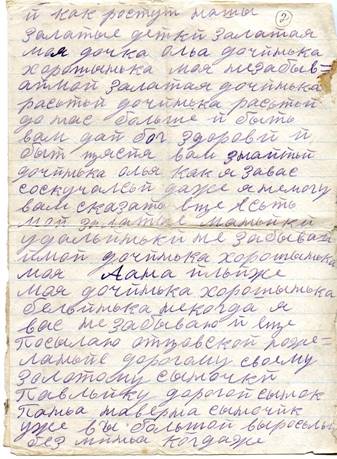 и как ростут нашы
2
залатые детки залатая
моя дочка олья дочинька
хорошынька моя незабыв=
залатая дочинька
расьтьй дочинька расьтьй
до нас больше и быть
вам дай бог здоровй й
быт щястя вам знайтьй
дочинька олья как я завас
соскучался даже я немогу
вам сказать еще есьть
мой залатые маньики
удалиньки не забывай
имой дочинька хорошынька
моя
моя дочинька хорошынька
белойнька некогда я
вас незабываю й еще
посылаю отцовской поже=
ланые дорогому своему
золотому сыночки
Павлыку дорогой сынок
Панья наверна сыночик
уже вы большой выросьлы
без миня когдаже